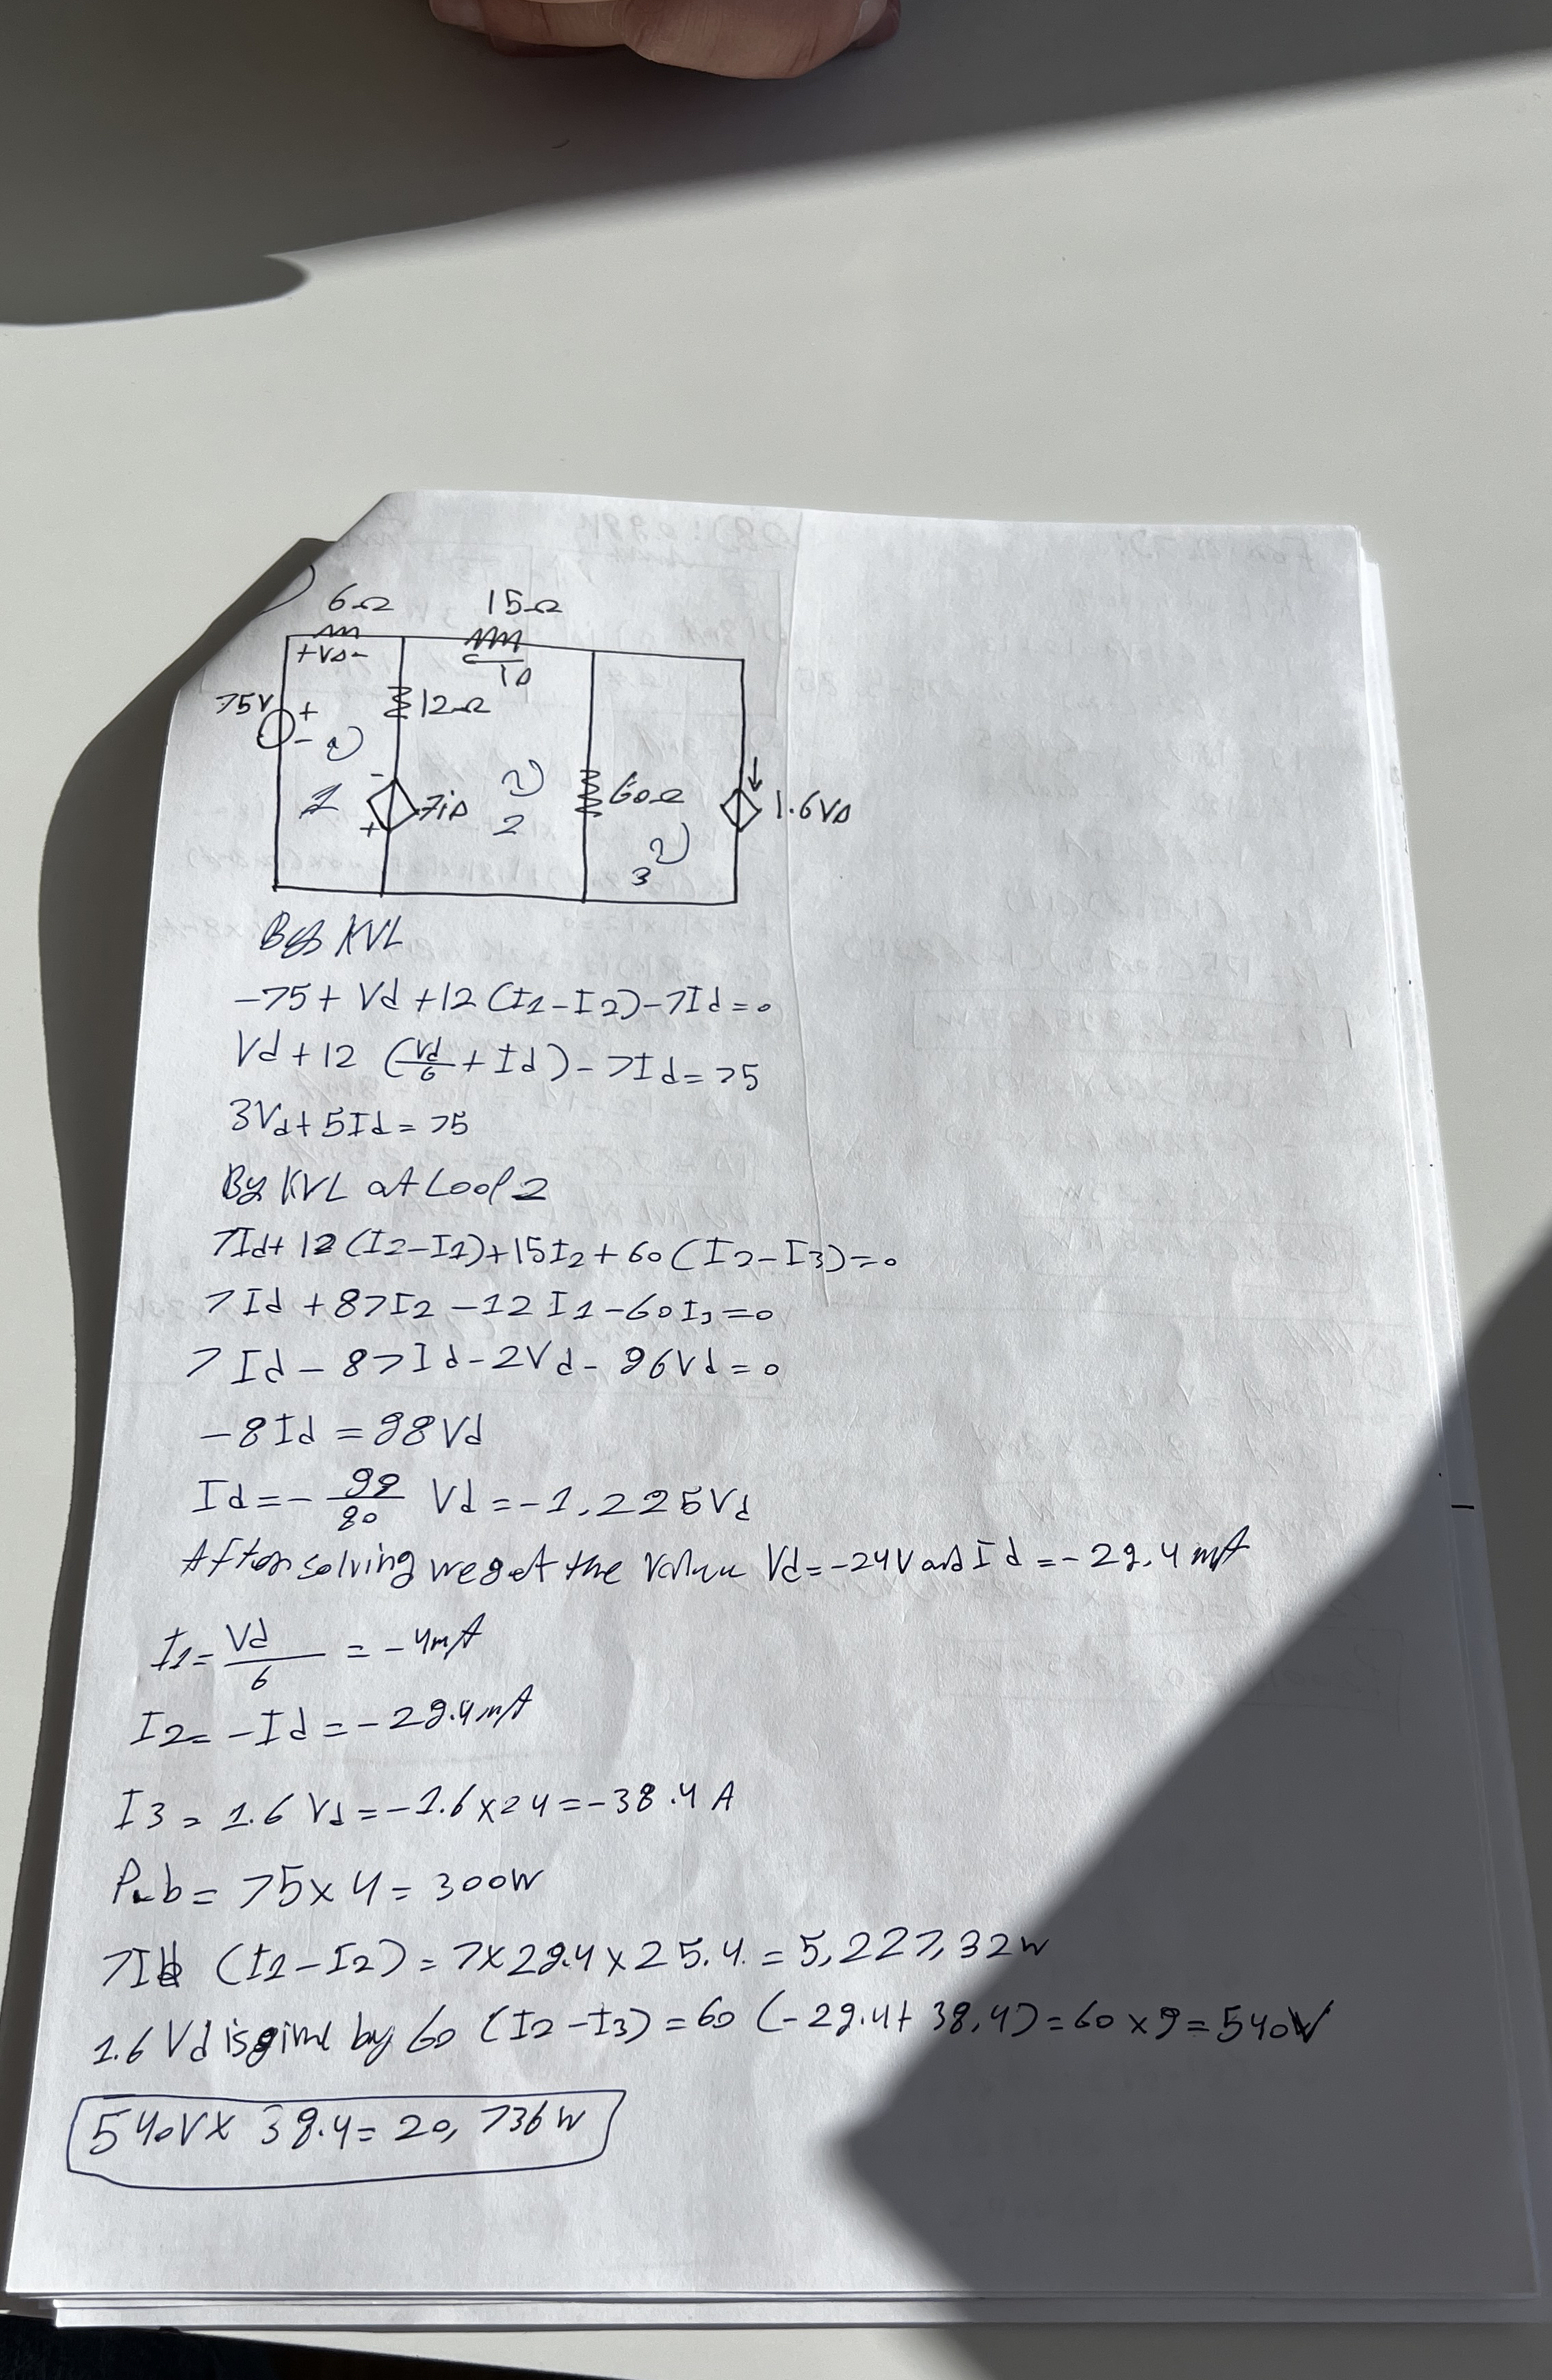 6Ω 15Ω
+VΔ- iΔ
75V + - 12Ω
1 - + 7iΔ 2 60Ω 1.6VΔ
3
By KVL
-75+ Vd +12 (I1-I2)-7Id=0
Vd+12 (Vd/6 + Id)-7Id=75
3Vd+5Id=75
By KVL at Loop 2
7Id+12(I2-I1)+15I2+60(I2-I3)=0
7Id+87I2-12I1-60I3=0
7Id-87Id-2Vd-96Vd=0
-8Id=98Vd
Id=- 99/80 Vd=-1,225Vd
After solving we get the value Vd=-24V and Id=-29.4mA
I1= Vd/6 =-4mA
I2=-Id=-29.4mA
I3= 1.6 Vd=-1.6×24=-38.4 A
= 75×4= 300W
(I1-I2)= 7×29.4×25.4.=5,227,32W
1.6 Vd is by 60 (I2-I3)=60 (-29.4+ 38.4)=60×9=540V
540V× 38.4= 20,736W